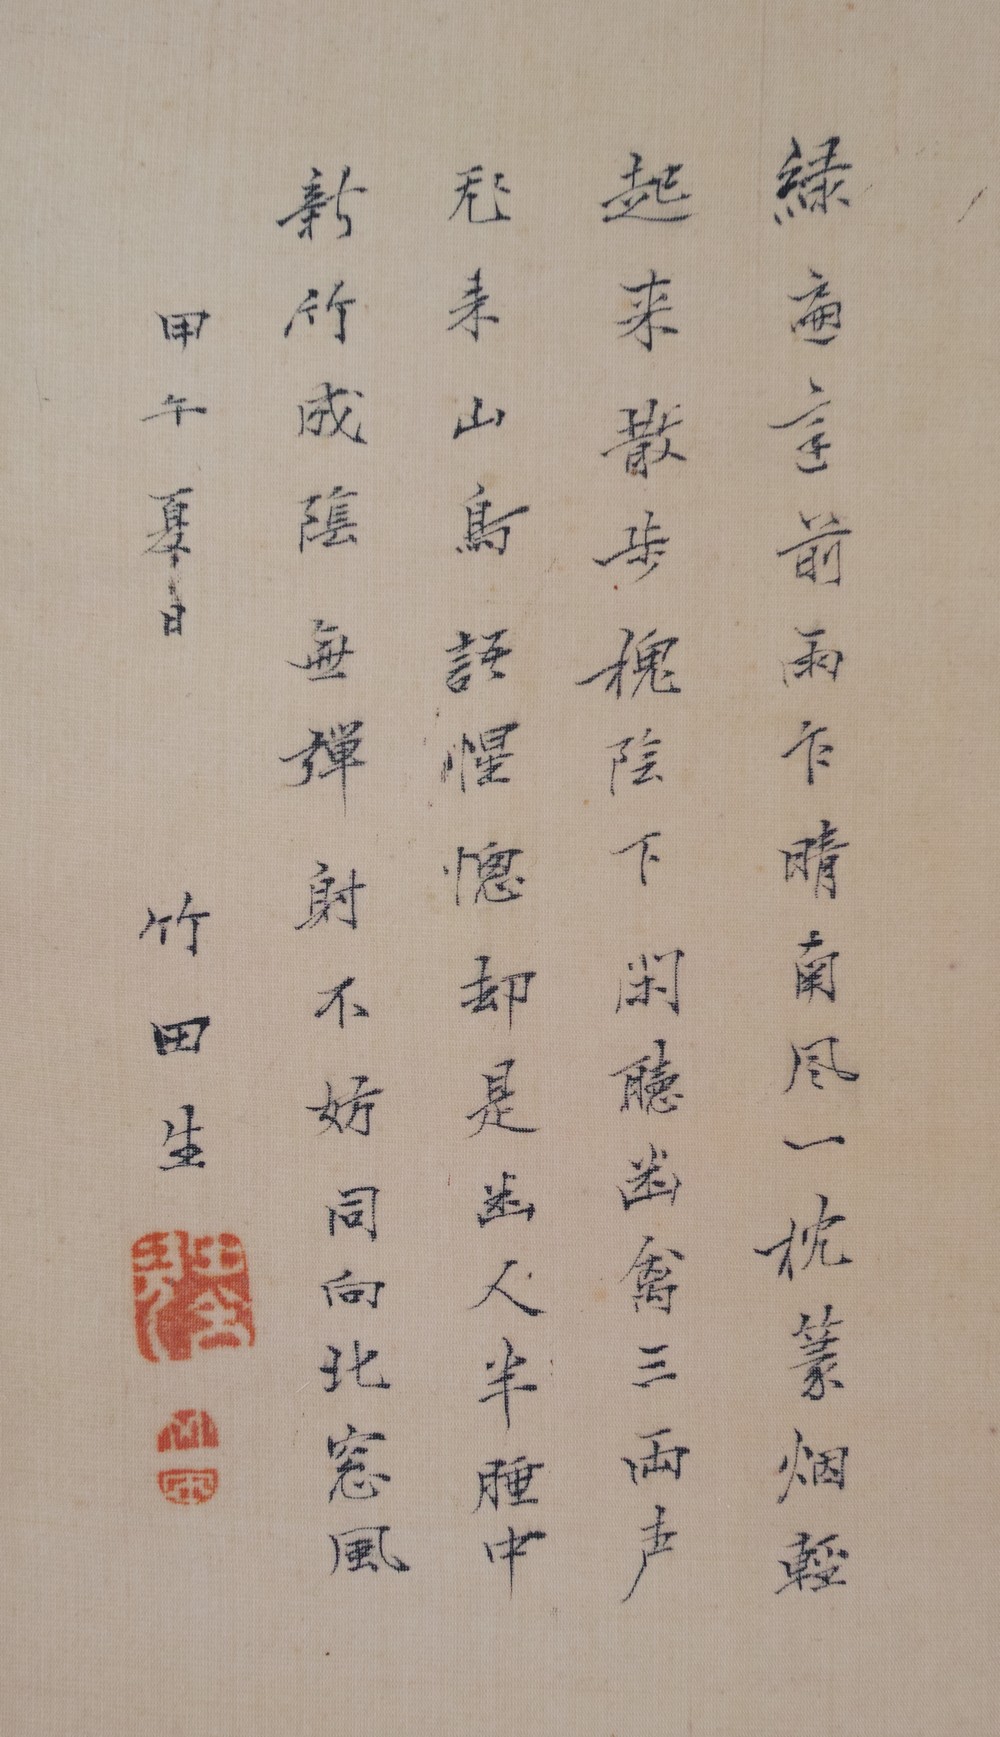 綠遍亭前雨乍晴南风一枕篆烟輕
起来散步槐陰下闲聽幽禽三兩声
飛来山鳥語惺憁却是幽人半睡中
新竹成陰無彈射不妨同向北窓風
甲午夏日
竹田生